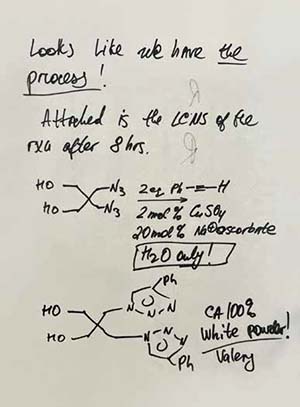 Looks like we have the
process!
Attached is the LCMS of the
rxn after 8 hrs.
HO N₃ 2 eq Ph-≡-H
HO N₃ 2 mol% CuSO₄
20 mol% Na ascorbate
H₂O only!
Ph
HO N N N CA 100%
HO N N N White powder!
Ph Valery